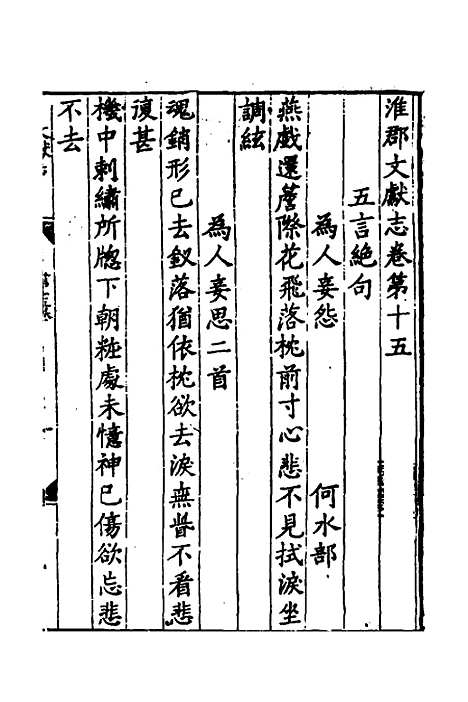 淮郡文獻志卷第十五
五言絕句
為人妾怨　何水部
燕戯還簷際花飛落枕前寸心悲不見拭淚坐
調絃
為人妾思二首
魂銷形已去釵落猶依枕欲去淚無眥不看悲
復甚
機中刺繡所牎下朝粧處未憶神已傷欲忘悲
不去